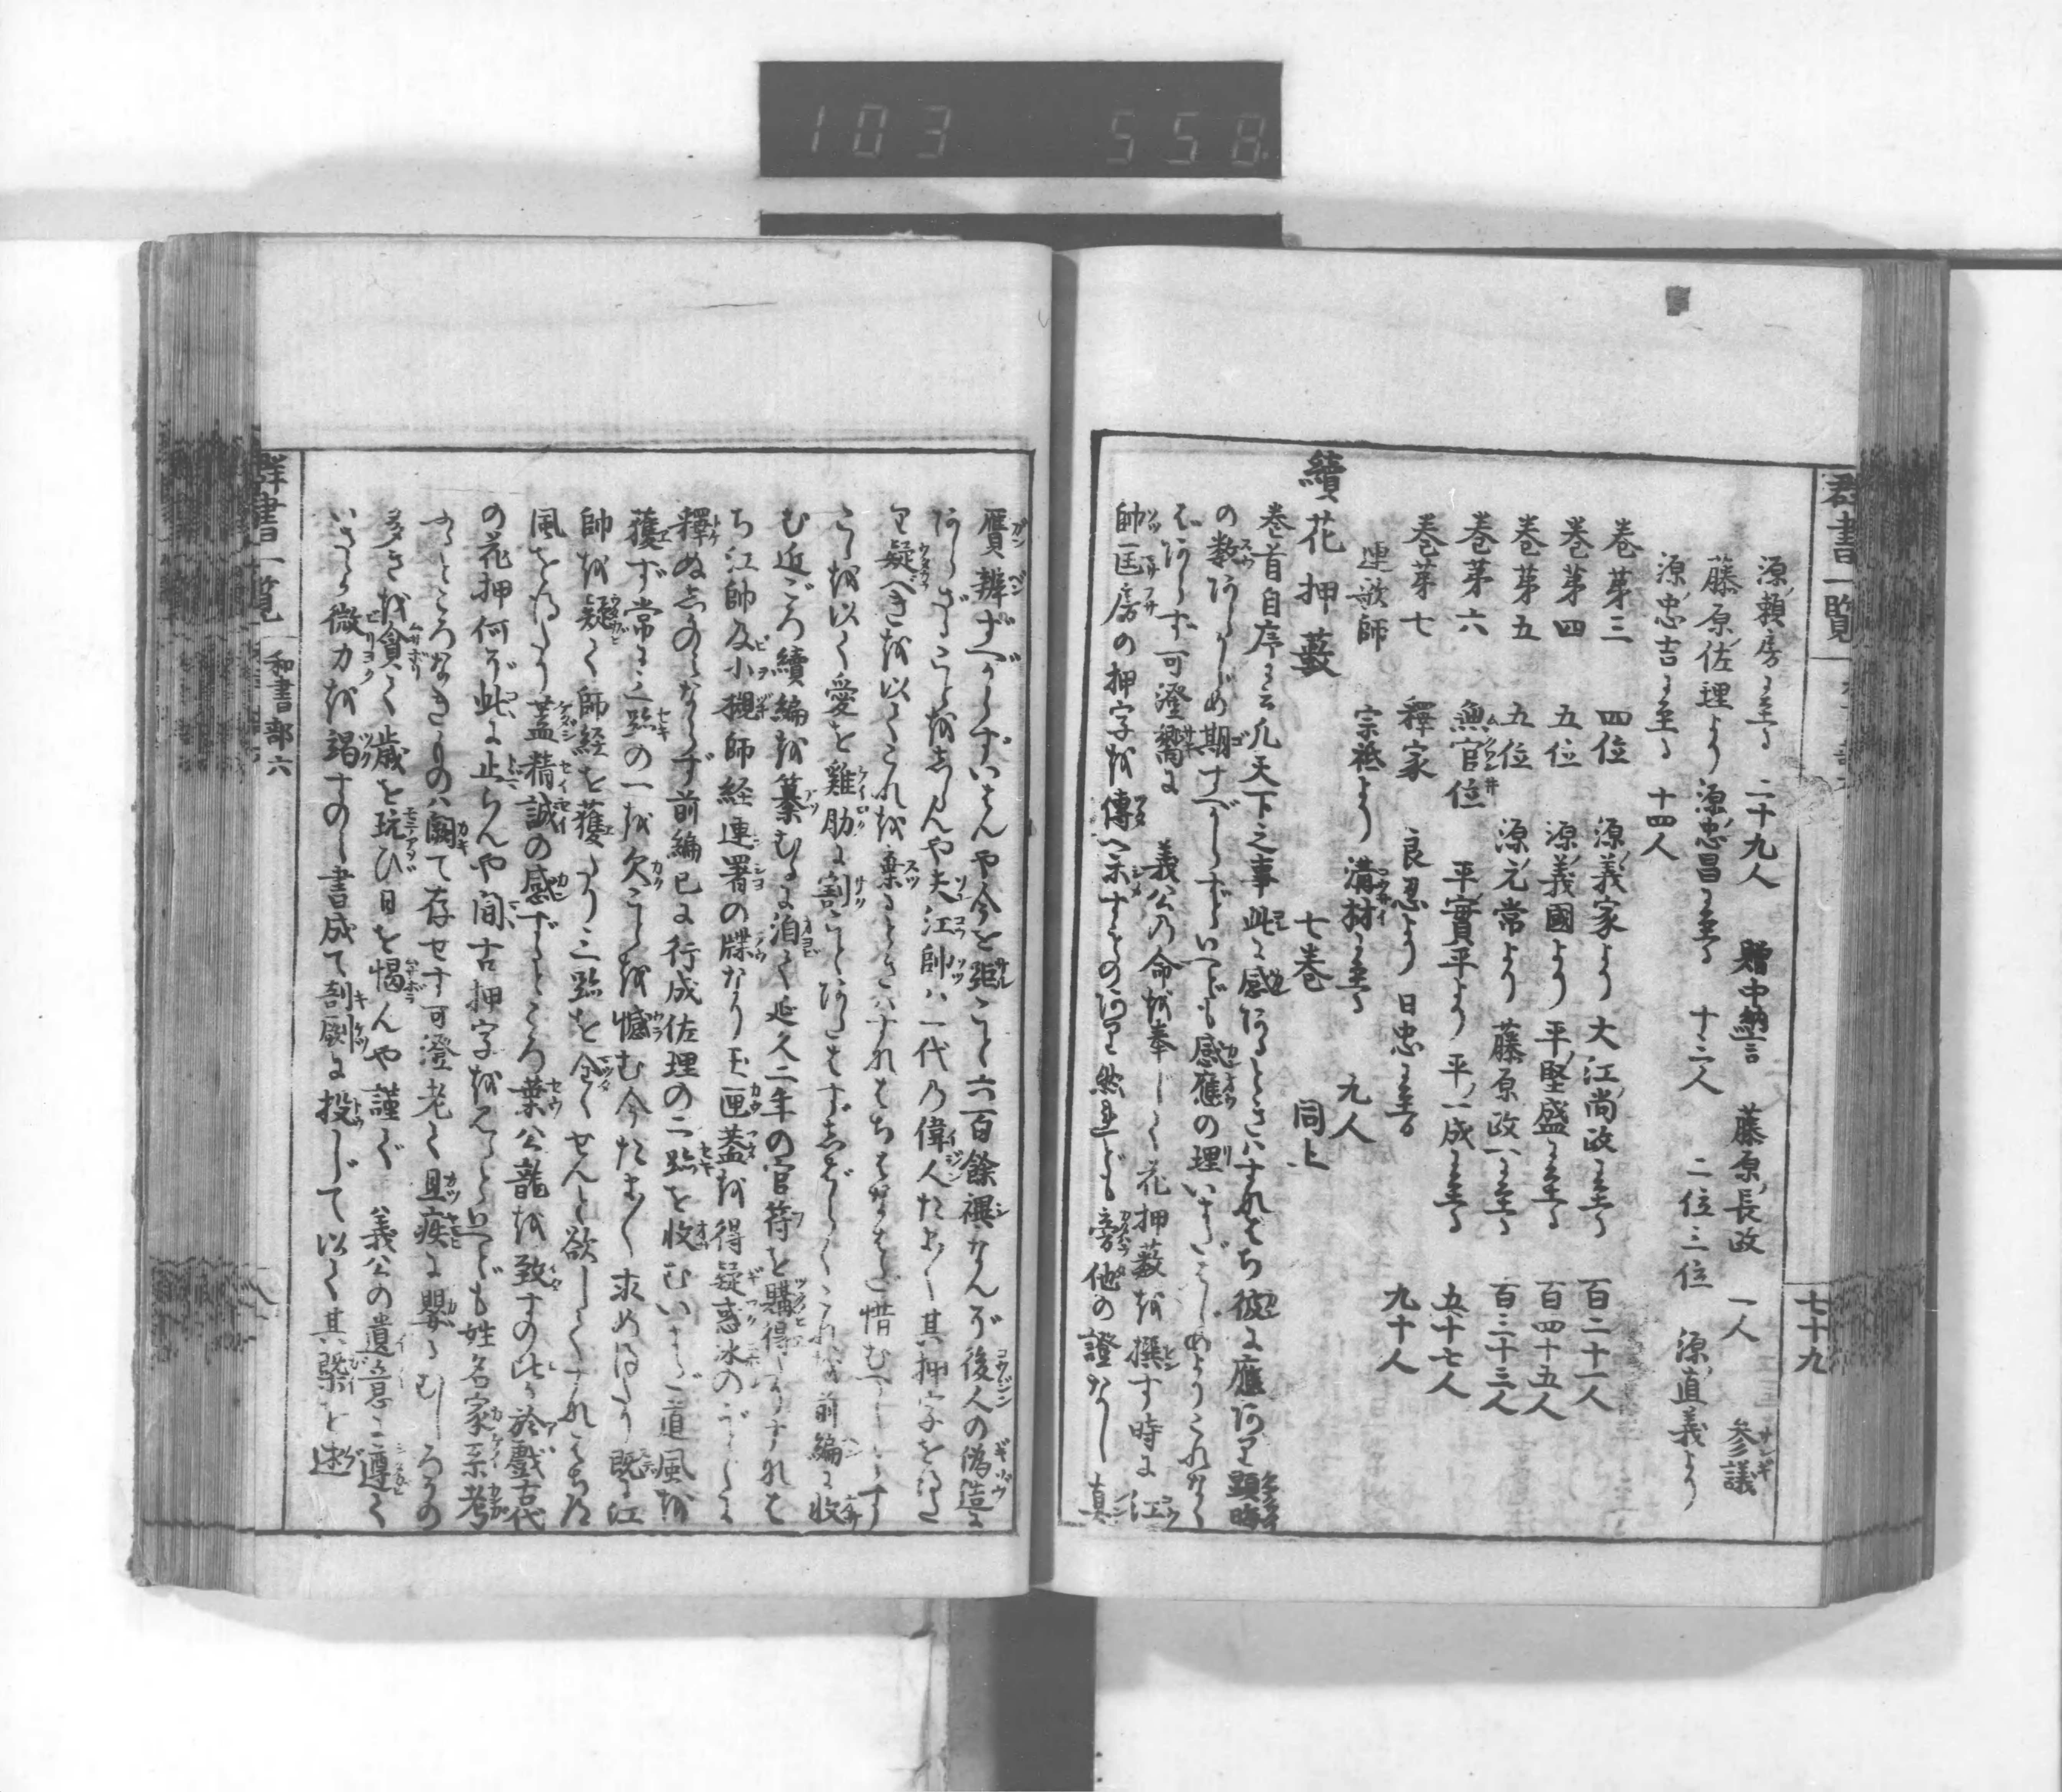 103 558
群書一覧
七十九
源頼房に至る 二十九人 贈中納言 藤原長政 一人 参議
藤原佐理より源忠昌に至る 十三人 二位三位 源直義より
源忠吉に至る 十四人
巻第三 四位 源義家より大江尚政に至る 百二十一人
巻第四 五位 源義國より平堅盛に至る 百四十五人
巻第五 五位 源元常より藤原政一に至る 百三十三人
巻第六 無官位 平實平より平一成に至る 五十七人
巻第七 釋家 良忍より日忠に至る 九十人
連歌師 宗祗より溝杭に至る 九人
續花押藪 七巻 同上
巻首自序に云凡天下之事此に感あるときはすなはち彼に應あり顕晦
の数あらかじめ期すべからずといへども感應の理いまだはじめよりこれなくんば
あらず可澄嚮に 義公の命を奉じて花押藪を撰す時に江
帥匡房の押字を傳へ示すものあり然れども旁他の證なし真
贋辨ずべからずいはんや今を距こと六百餘禩なんぞ後人の偽造に
あらざることをしらんや夫江帥は一代の偉人たまたま其押字を得た
り疑べきを以てこれを棄るときはすなはちはなはだ惜むべしとす
こゝを以て愛を雞肋に割ことあたはずしばらくこれを前編に收
む近ごろ續編を纂むるに洎て延久二年の官符を購得たりすなは
ち江帥及小槻師経連署の牒なり玉匣蓋を得疑惑氷のごとくに
釋ぬしかのみならず前編已に行成佐理の二蹟を收むいまだ道風を
獲ず常に三蹟の一を欠ことを憾む今たまたま求め得たり既に江
帥を疑て師経を獲たり三蹟を全くせんと欲してすなはちた
風を得たり蓋精誠の感ずるところ葉公龍を致すの比か於戲古代
の花押何ぞ此に止らんや間古押字を見るといへども姓名家系考
るところなきものは闕て存せず可澄老て且疾に嬰るむしろその
多きを貪て歳を玩び日を愒んや謹で 義公の遺意に遵て
いさゝか微力を竭すのみ書成て剞劂に投じて以て其槩を述
群書一覧 和書部六